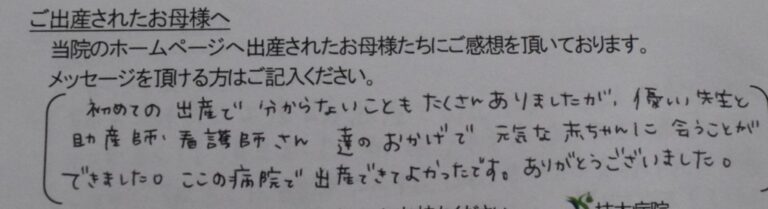 ご出産されたお母様へ
当院のホームページへ出産されたお母様たちにご感想を頂いております。
メッセージを頂ける方はご記入ください。
初めての出産で分からないこともたくさんありましたが、優しい先生と
助産師・看護師さん達のおかげで元気な赤ちゃんに会うことが
できました。ここの病院で出産できてよかったです。ありがとうございました。